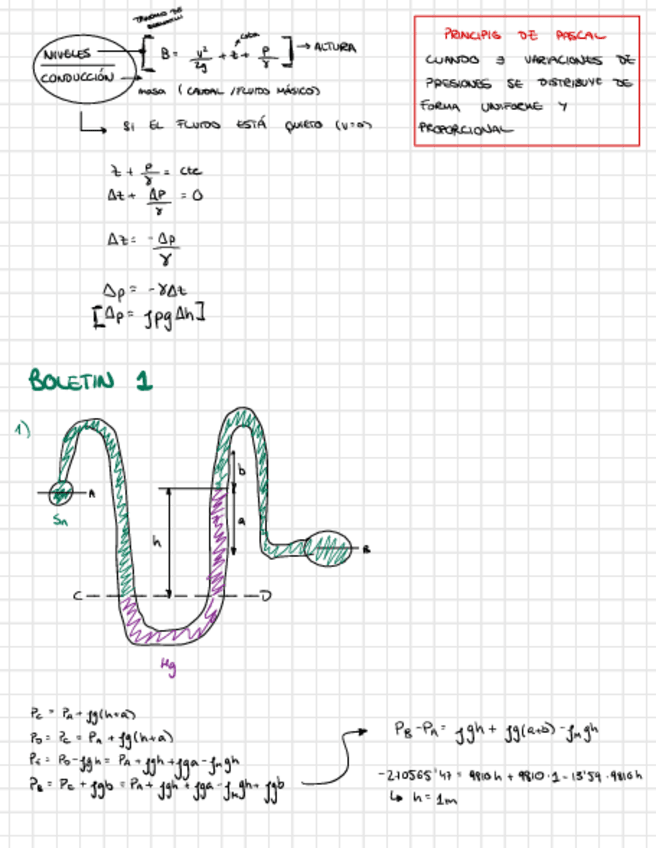 TRINOMIO DE BERNOULLI
NIVELES
CONDUCCIÓN
[ B = v²/2g + z + P/γ ] → ALTURA
cota
masa ( CAUDAL / FLUIDO MÁSICO)
↳ SI EL FLUIDO ESTÁ QUIETO (v=0)
z + P/γ = cte
Δz + ΔP/γ = 0
Δz = -ΔP/γ
Δp = -γΔz
[Δp = ρg Δh]
PRINCIPIO DE PASCAL
CUANDO ∃ VARIACIONES DE
PRESIONES SE DISTRIBUYE DE
FORMA UNIFORME Y
PROPORCIONAL
BOLETIN 1
1)
A
Sn
b
a
h
B
C
D
Hg
Pc = PA + ρg(h+a)
PD = Pc = PA + ρg(h+a)
PE = PD - ρgh = PA + ρgh + ρga - ρₘgh
PB = PE + ρgb = PA + ρgh + ρga - ρₘgh + ρgb
PB - PA = ρgh + ρg(a+b) - ρₘgh
-210565'47 = 9810h + 9810·1 - 13'59·9810h
↳ h = 1m